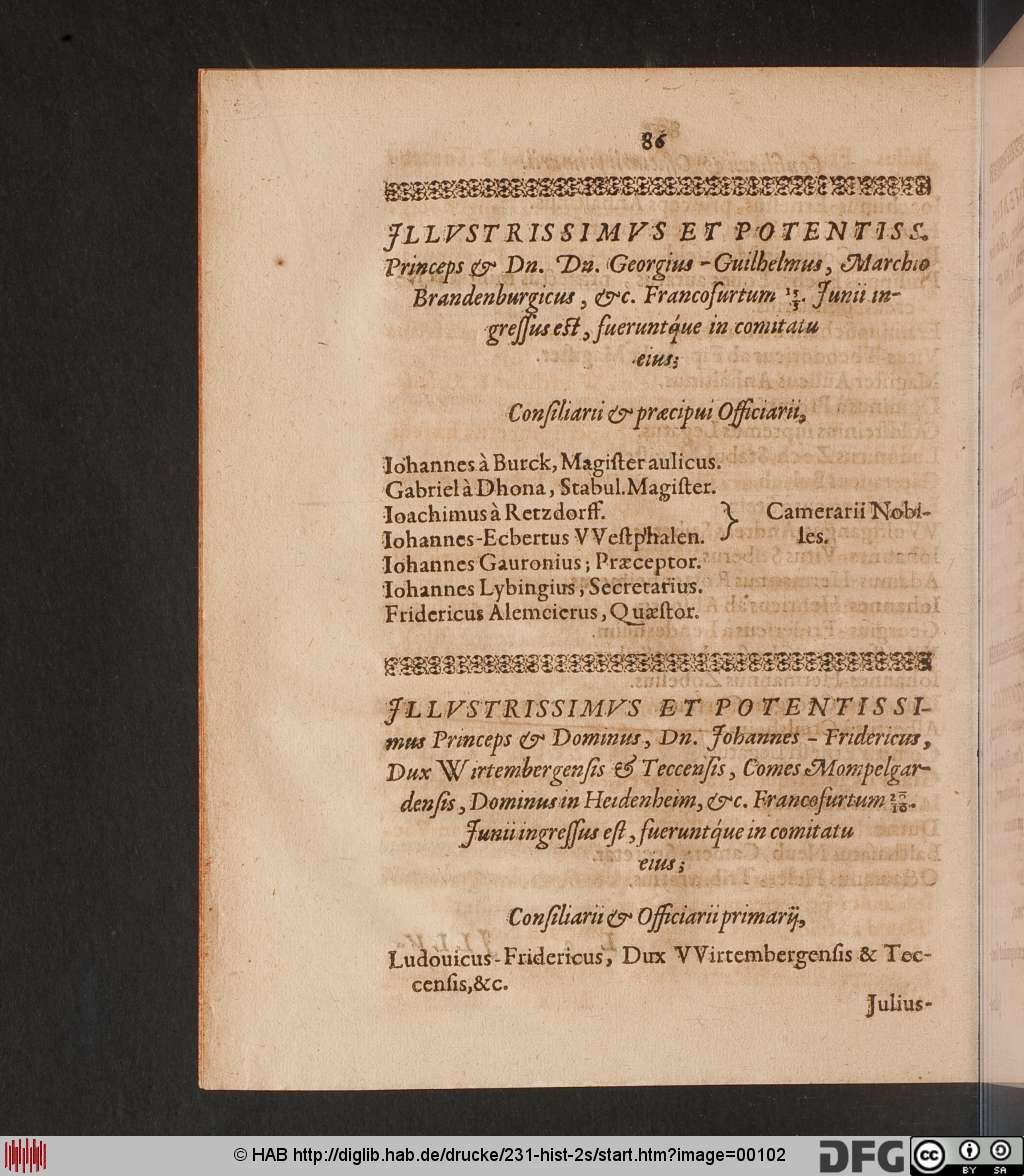 86
JLLVSTRISSIMVS ET POTENTISS.
Princeps & Dn. Dn. Georgius-Guilhelmus, Marchio
Brandenburgicus, &c. Francofurtum 15/5. Junii in-
gressus est, fueruntq́ue in comitatu
eius;
Consiliarii & præcipui Officiarii,
Iohannes à Burck, Magister aulicus.
Gabriel à Dhona, Stabul. Magister.
Ioachimus à Retzdorff. } Camerarii Nobi-
Iohannes-Ecbertus VVestphalen. } les.
Iohannes Gauronius; Præceptor.
Iohannes Lybingius, Secretarius.
Fridericus Alemeierus, Quæstor.
JLLVSTRISSIMVS ET POTENTISSI-
mus Princeps & Dominus, Dn. Johannes-Fridericus,
Dux Wirtembergensis & Teccensis, Comes Mompelgar-
densis, Dominus in Heidenheim, &c. Francofurtum 20/10.
Junii ingressus est, fueruntq́ue in comitatu
eius;
Consiliarii & Officiarii primarij,
Ludouicus-Fridericus, Dux VVirtembergensis & Tec-
censis, &c.
Julius-
© HAB http://diglib.hab.de/drucke/231-hist-2s/start.htm?image=00102
DFG
cc
BY SA